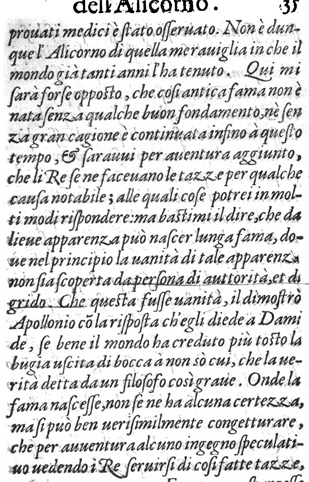 dell'Alicorno. 35
prouati medici è stato osseruato. Non è dun-
que l'Alicorno di quella merauiglia in che il
mondo già tanti anni l'ha tenuto. Qui mi
sarà forse opposto, che cosi antica fama non è
nata senza qualche buon fondamento, nè sen
za gran cagione è continuata insino à questo
tempo, & sarauui per auentura aggiunto,
che li Re se ne faceuano le tazze per qualche
causa notabile; alle quali cose potrei in mol-
ti modi rispondere: ma bastimi il dire, che da
lieue apparenza può nascer lunga fama, do-
ue nel principio la uanità di tale apparenza
non sia scoperta da persona di auttorità, et di
grido. Che questa fusse uanità, il dimostrò
Apollonio cō la risposta ch'egli diede a Dami
de, se bene il mondo ha creduto più tosto la
bugia uscita di bocca à non sò cui, che la ue-
rità detta da un filosofo così graue. Onde la
fama nascesse, non se ne ha alcuna certezza,
ma si può ben uerisimilmente congetturare,
che per auuentura alcuno ingegno speculati-
uo uedendo i Re seruirsi di cosi fatte tazze,